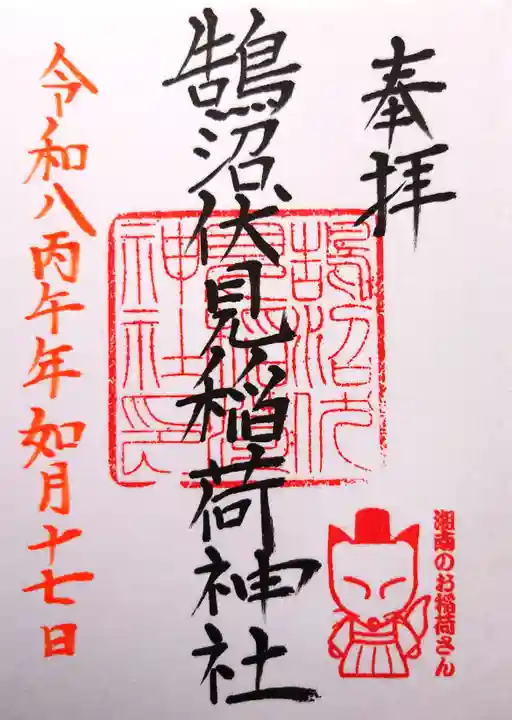 奉拝
鵠沼伏見稲荷神社
鵠沼伏見稲荷神社印
令和八丙午年如月十七日
湘南のお稲荷さん